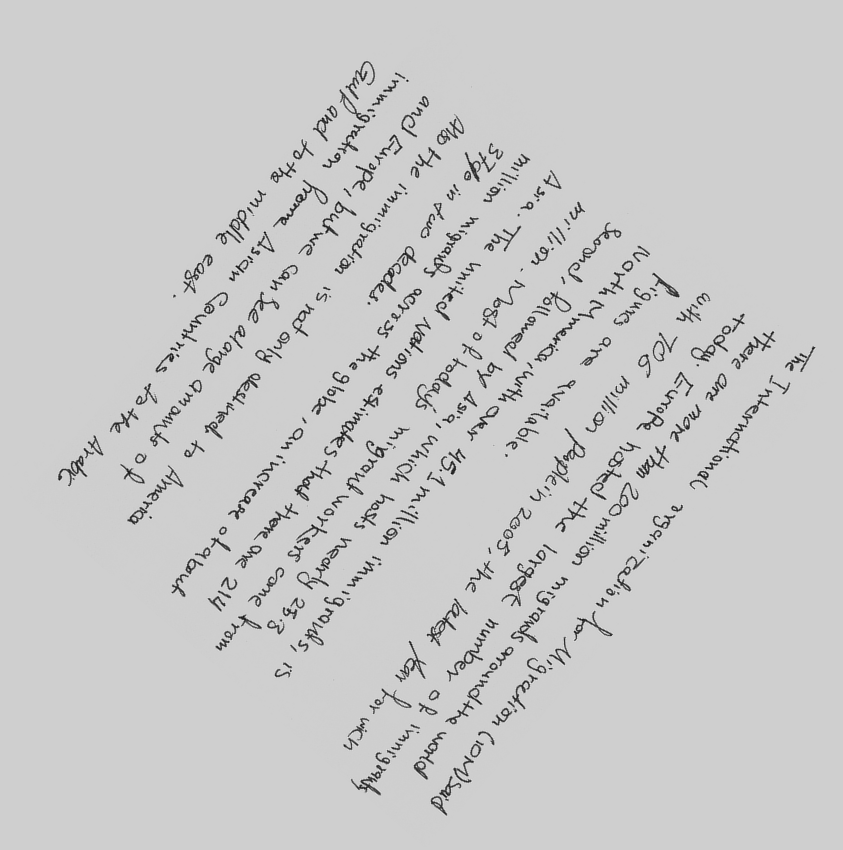 The International organization for Migration (IOM) said
there are more than 200 million migrants around the world
today. Europe hosted the largest number of immigrants
with 70.6 million people in 2005, the latest year for wich
figures are available.
North America, with over 45.1 million immigrants, is
second, followed by Asia, which hosts nearly 25.3
million. Most of today's migrant workers come from
Asia. The united Nations estimates that there are 214
million migrants across the globe, an increase of about
37% in two decades.
Also the immigration is not only destined to America
and Europe, but we can see a large amounts of
immigration from Asian Countries to the Arabic
Gulf and to the middle east.